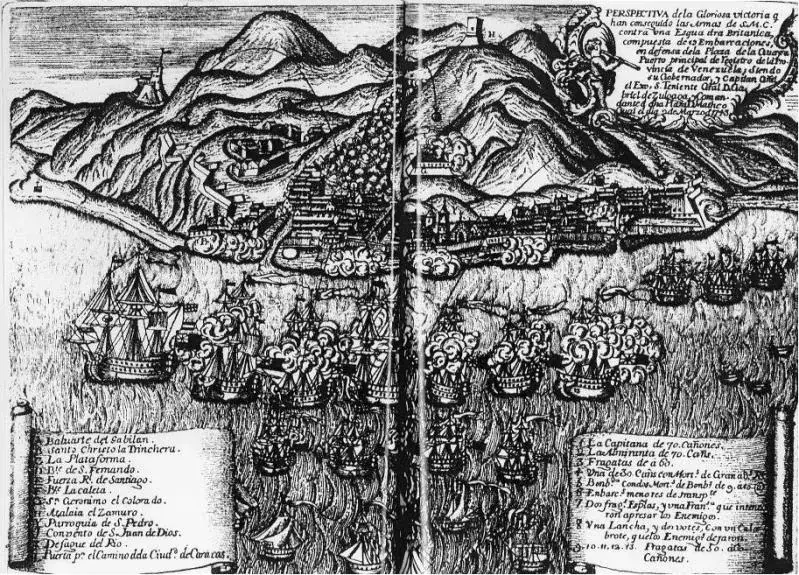 PERSPECTIVA dela Gloriosa victoria q
han conseguido las Armas de S.M.C.
contra Una Esqua dra Britanica,
compuesta de 19 Embarraciones,
en defensa dela Plaza de la Guayra
Puerto principal de registro de la Pro
vincia de Venezuela; Siendo
su Gobernador, y Capitan Gñl
el Exo. S. Teniente Gñal D. Ga
briel de Zuloaga, y Coman
dante d dha Plaza D. Matheo
Gual el dia 2 de Marzo d 1743
H
Baluarte del Gabilan.
Santo Christo la Trinchera.
La Plataforma.
Bte. de S. Fernando.
Fuerza Rl. de Santiago.
Bte. La caleta.
Sn. Geronimo el Colorado.
Atalaia el Zamuro.
Parroquia de S. Pedro.
Convento de S. Juan de Dios.
Desague del Rio.
Puerta pa. el Camino dela Ciudd. de Caracas.
1 La Capitana de 70. Cañones.
2 La Almiranta de 70. Cañs.
3 Fragatas de a 60.
4 Una de 50 Cañs con Mort.s de Granab.s
5 Bomb.s Con dos Mort.s de Bomb.s de 9. a
6 Embarc.s menores de transp.te
7 Dos frag.s Espãs, y una Fran.sa que inten
ron apresar los Enemigos.
8 Una Lancha, y dos votes, Con un Cala
brote, que los Enemig.s dejaron.
9. 10. 11. 12. 13. Fragatas de 50. a 40
Cañones.